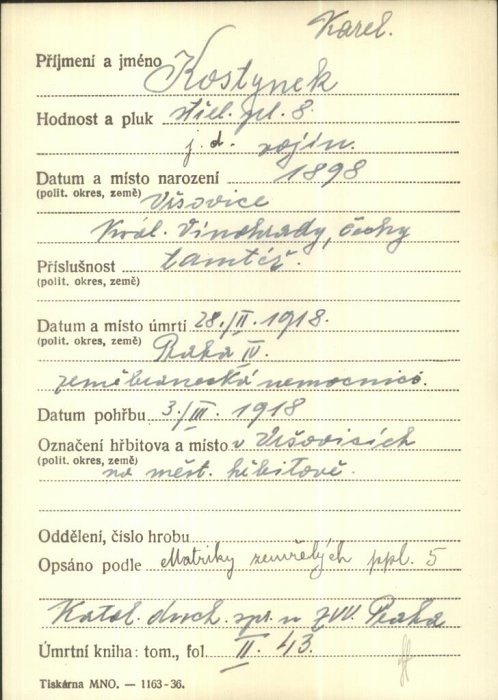 Karel.
Příjmení a jméno Kostynek
Hodnost a pluk střel. pl. 8.
j. d. vojín.
Datum a místo narození 1898
(polit. okres, země) Vršovice
Král. Vinohrady, Čechy
Příslušnost tamtéž.
(polit. okres, země)
Datum a místo úmrtí 28./II. 1918.
(polit. okres, země) Praha IV.
zeměbranecká nemocnice.
Datum pohřbu 3./III. 1918
Označení hřbitova a místo v Vršovicích
(polit. okres, země) na měst. hřbitově.
Oddělení, číslo hrobu
Opsáno podle Matriky zemřelých ppl. 5
Katol. duch. spr. u ZVV. Praha
Úmrtní kniha: tom., fol. II. 43.
Tiskárna MNO. — 1163-36.